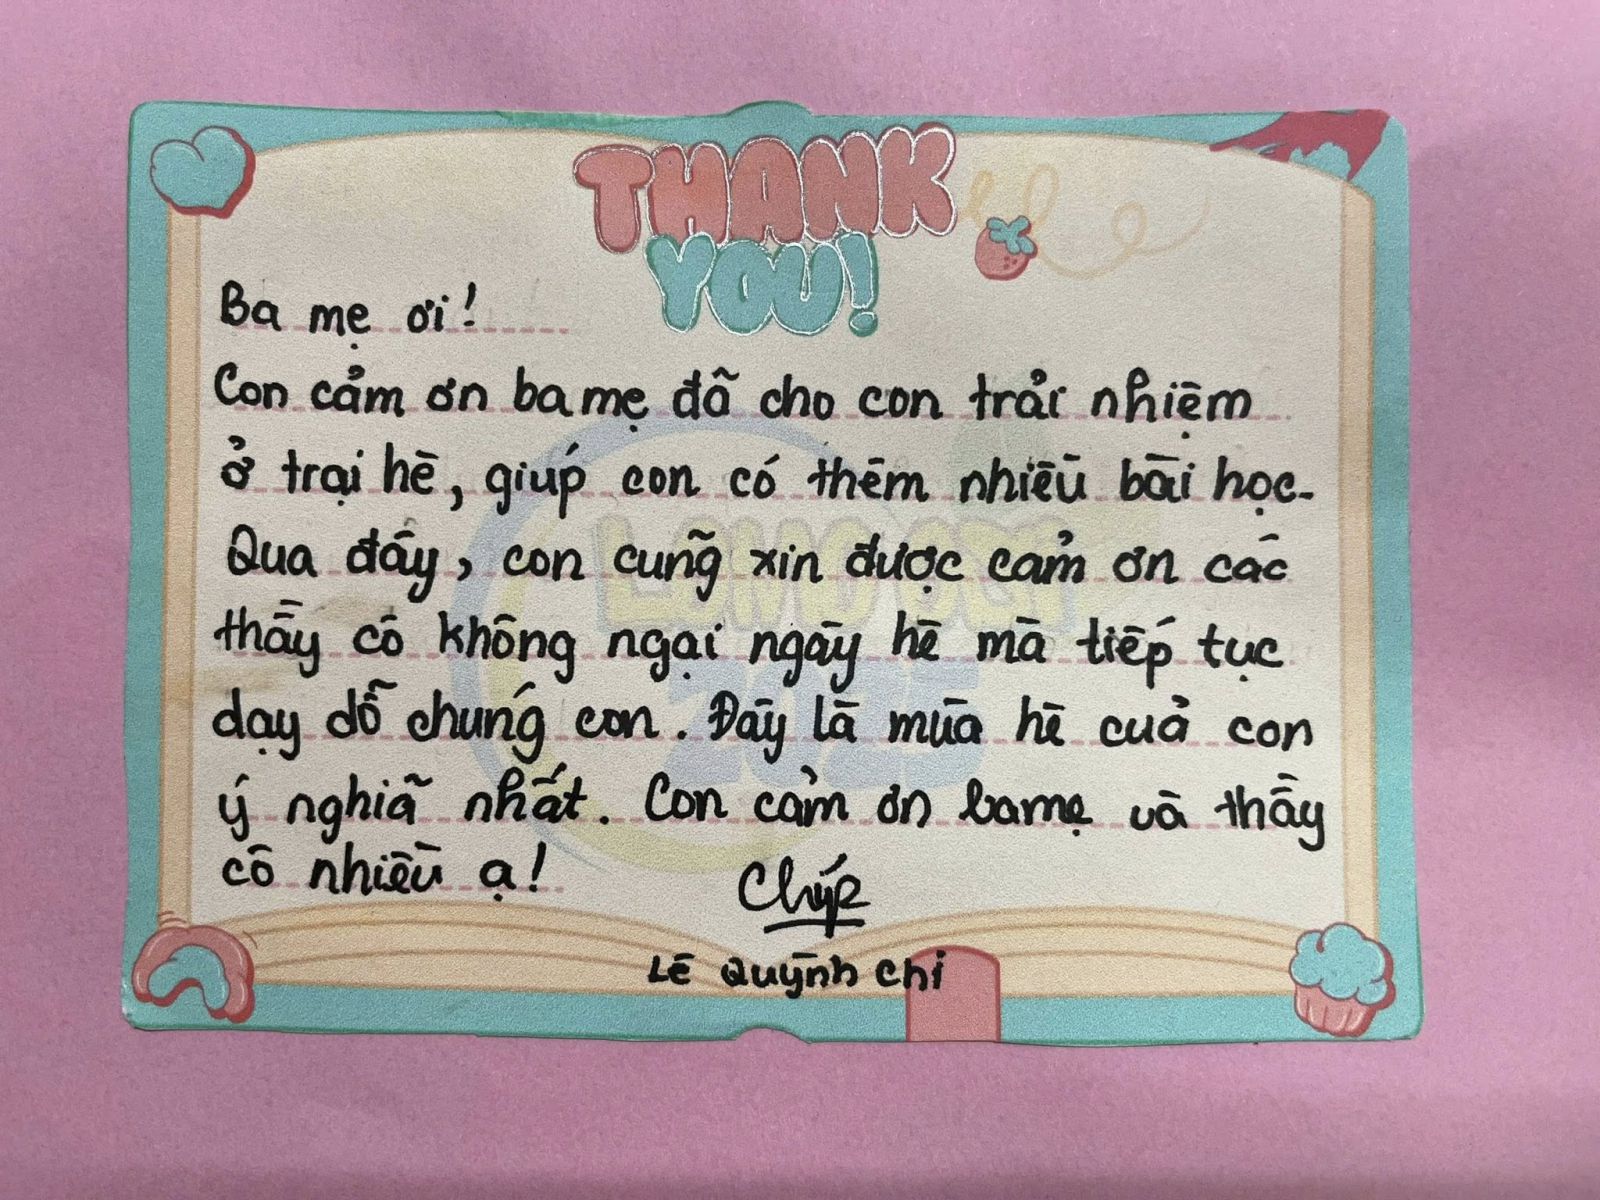 THANK
YOU!
Ba mẹ ơi!
Con cảm ơn ba mẹ đã cho con trải nhiệm
ở trại hè, giúp con có thêm nhiều bài học.
Qua đây, con cũng xin được cảm ơn các
thầy cô không ngại ngày hè mà tiếp tục
dạy dỗ chúng con. Đây là mùa hè của con
ý nghĩa nhất. Con cảm ơn ba mẹ và thầy
cô nhiều ạ!
Chíp
Lê Quỳnh Chi
2025